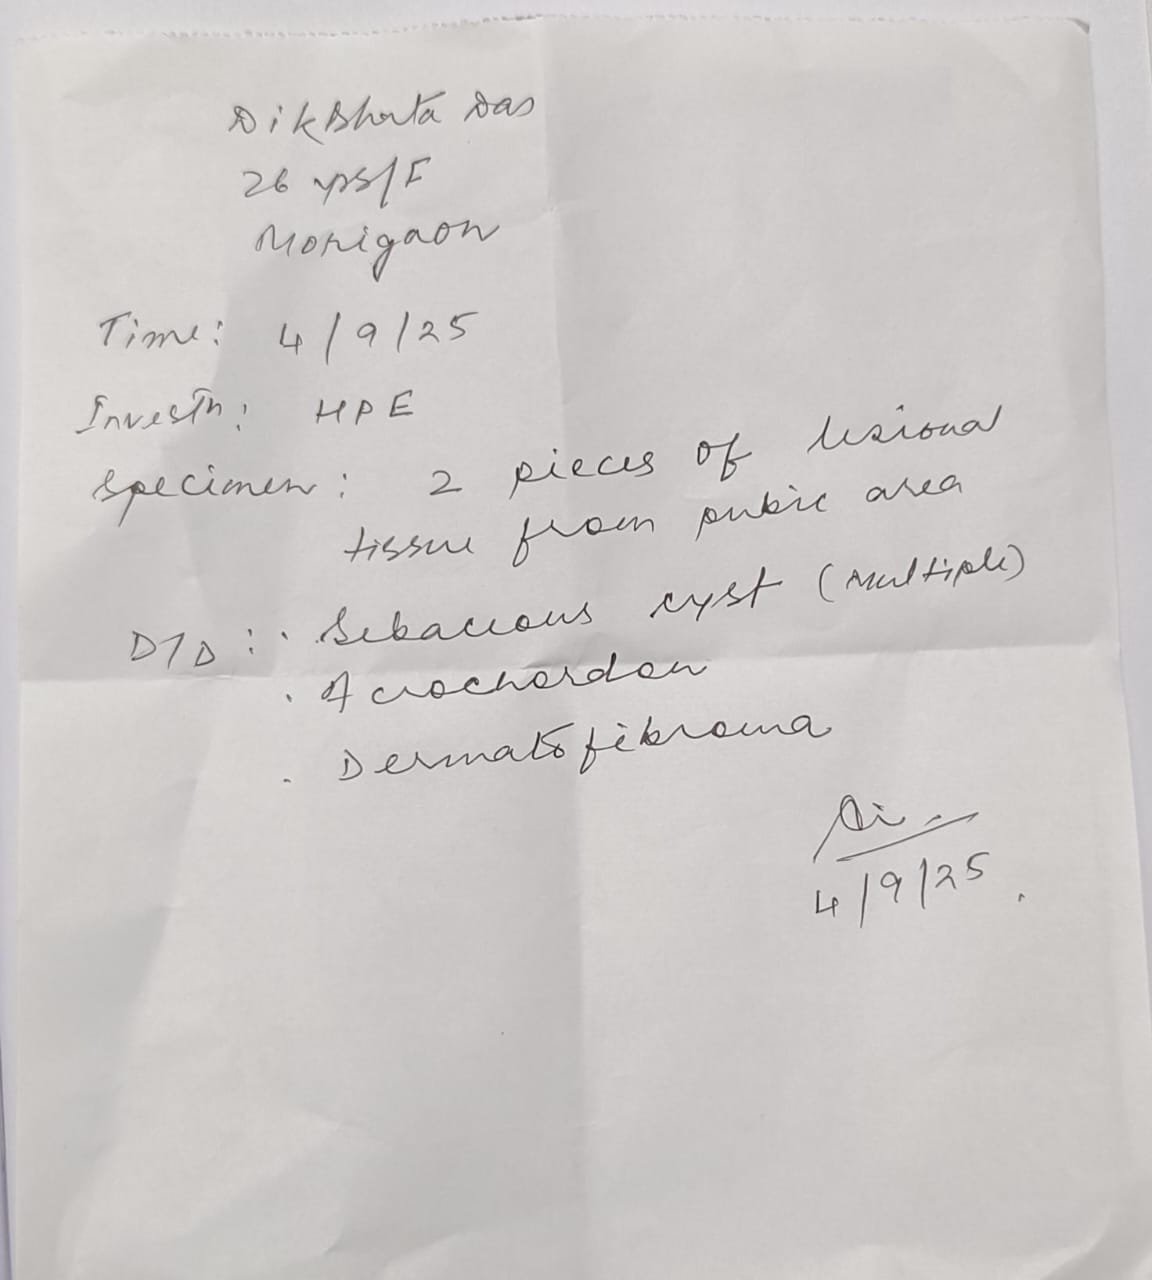 Dikshita Das
26 yrs/F
Morigaon
Time: 4/9/25
Investn: HPE
Specimen: 2 pieces of lesional
tissue from pubic area
D/D: • Sebaceous cyst (Multiple)
• Acrochordon
• Dermatofibroma
4/9/25